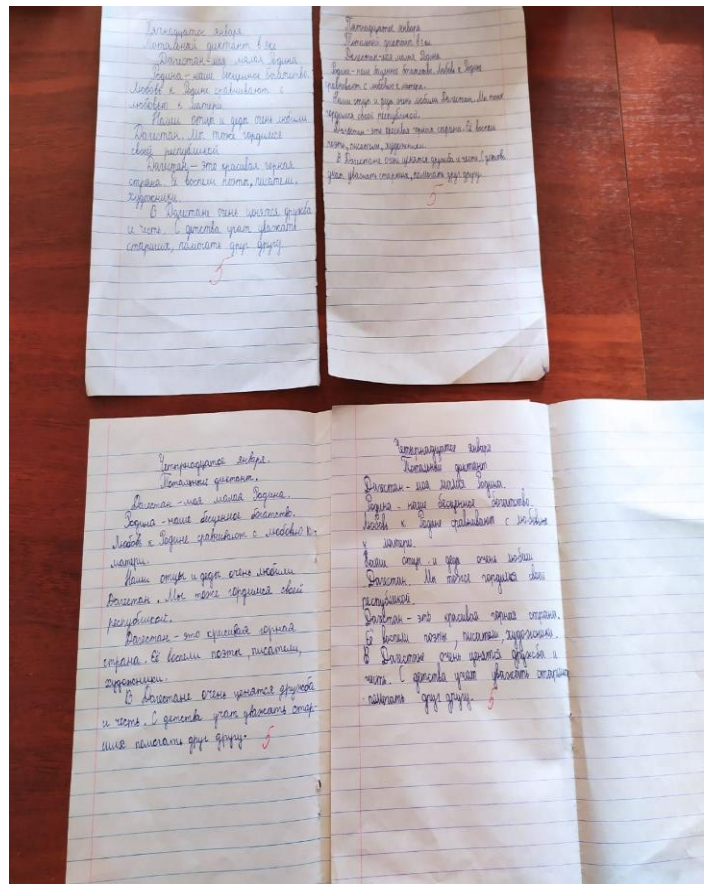 Пятнадцатое января
Тотальный диктант в
Дагестан-моя малая Родина
Родина-наше бесценное богатство.
Любовь к Родине сравнивают с
любовью к матери.
Наши отцы и деды очень любили
Дагестан. Мы тоже гордимся
своей республикой
Дагестан-это красивая горная
страна. Её воспели поэты, писатели,
художники.
В Дагестане очень ценятся дружба
и честь. С детства учат уважать
старших, помогать друг другу.
5
Пятнадцатое января
Тотальный диктант
Дагестан-моя малая Родина
Родина-наше бесценное богатство. Любовь к Родине
сравнивают с любовью к матери.
Наши отцы и деды очень любили Дагестан. Мы тоже
гордимся своей республикой
Дагестан-это красивая горная страна. Её воспели
поэты, писатели, художники.
В Дагестане очень ценятся дружба и честь. С детства
учат уважать старших, помогать друг другу.
5
Четырнадцатое января.
Тотальный диктант.
Дагестан-моя малая Родина.
Родина-наше бесценное богатство.
Любовь к Родине сравнивают с любовью к-
матери.
Наши отцы и деды очень любили
Дагестан. Мы тоже гордимся своей
республикой.
Дагестан-это красивая горная
страна. Её воспели поэты, писатели,
художники.
В Дагестане очень ценятся дружба
и честь. С детства учат уважать стар-
ших помогать друг другу.
5
Четырнадцатое января
Тотальный диктант
Дагестан-моя малая Родина.
Родина-наше бесценное богатство.
Любовь к Родине сравнивают с любовью
к матери.
Наши отцы и деды очень любили
Дагестан. Мы тоже гордимся своей
республикой.
Дагестан-это красивая горная страна.
Её воспели поэты, писатели, художники.
В Дагестане очень ценятся дружба и
честь. С детства учат уважать старших
помогать друг другу.
5